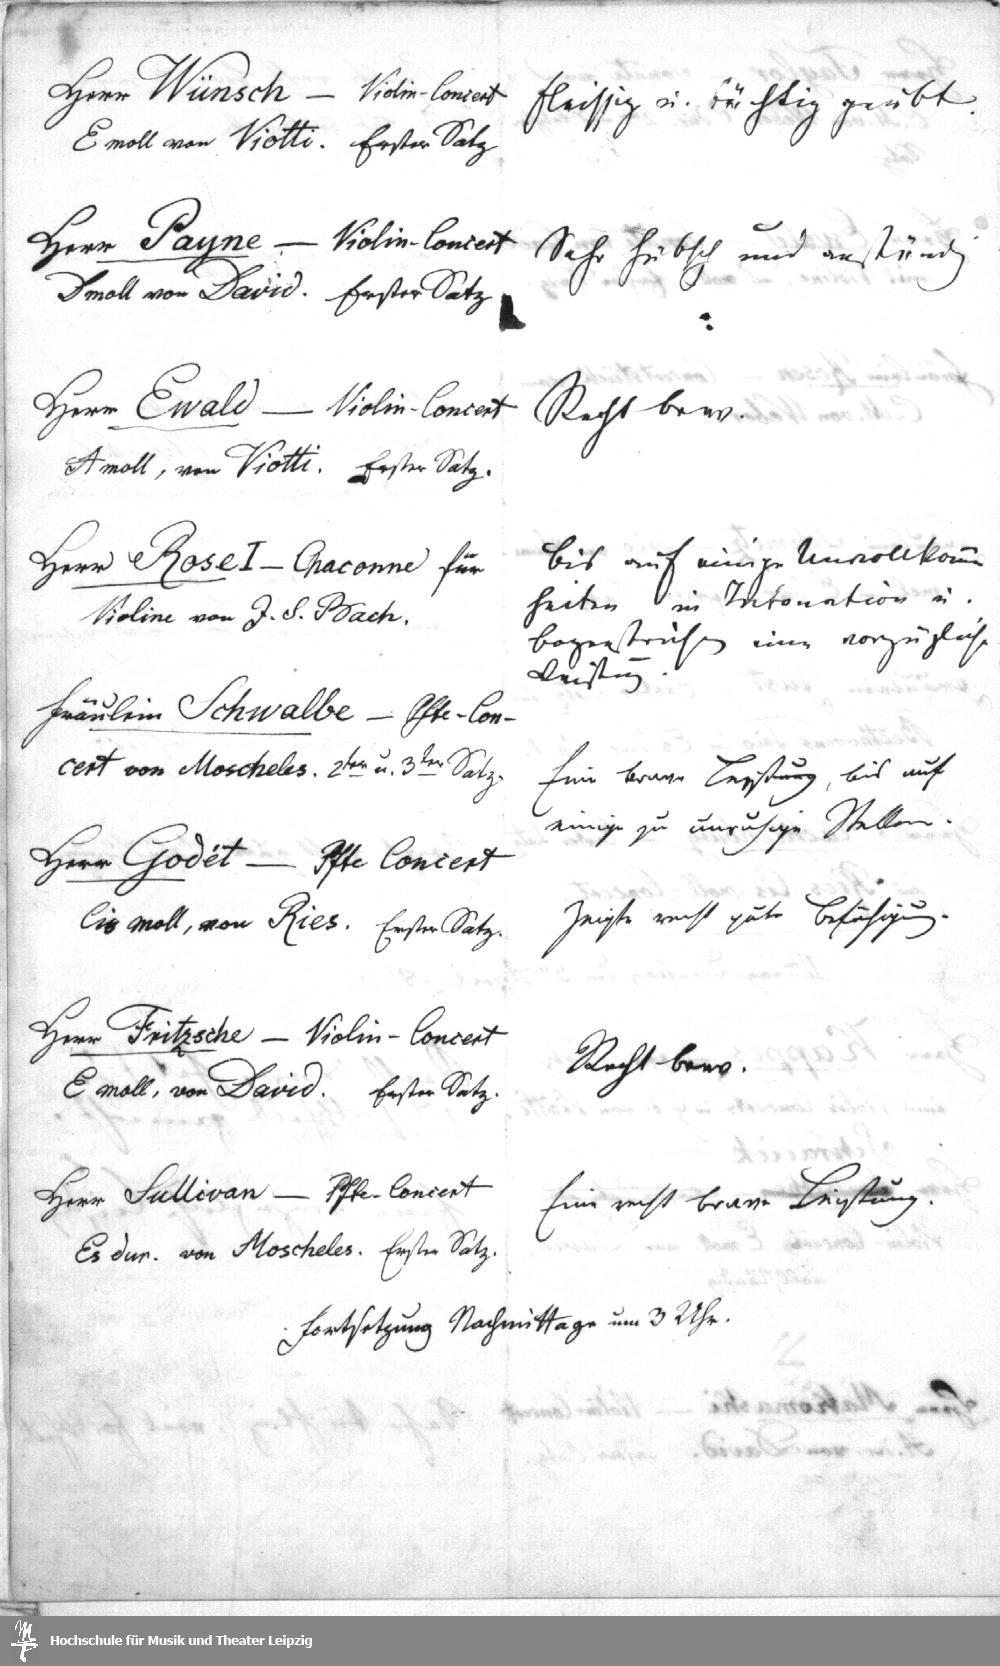 Herr Wünsch — Violin-Concert
E moll von Viotti. Erster Satz
fleissig u. tüchtig geübt.
Herr Payne — Violin-Concert
D moll von David. Erster Satz
Sehr hübsch und anständig
Herr Ewald — Violin-Concert
A moll, von Viotti. Erster Satz.
Recht brav.
Herr Rose I — Chaconne für
Violine von J. S. Bach.
bis auf einige Unvollkom̅en
heiten in Intonation u.
bogenstrichen eine vorzügliche
Leistung.
Fräulein Schwalbe — Pfte-Con-
cert von Moscheles. 2ter u. 3ter Satz.
Eine brave Leistung, bis auf
einige zu unruhige Stellen.
Herr Godét — Pfte Concert
Cis moll, von Ries. Erster Satz.
Zeigte recht gute Befähigung.
Herr Fritzsche — Violin-Concert
E moll, von David. Erster Satz.
Recht brav.
Herr Sullivan — Pfte-Concert
Es dur. von Moscheles. Erster Satz.
Eine recht brave Leistung.
Fortsetzung Nachmittage um 3 Uhr.
Hochschule für Musik und Theater Leipzig